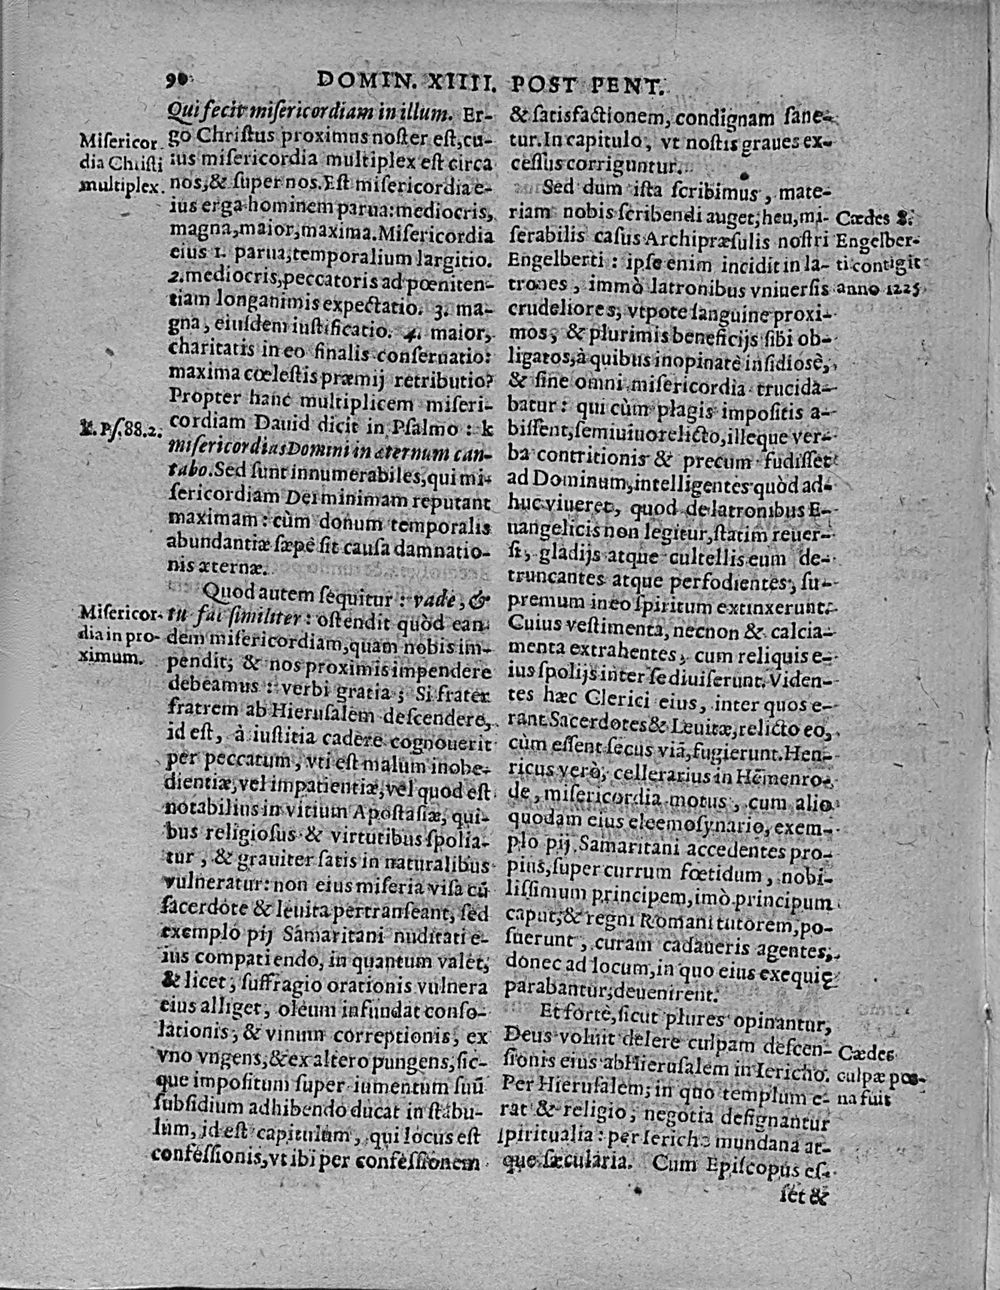 90 DOMIN. XIIII. POST PENT.
Qui fecit misericordiam in illum. Er-
go Christus proximus noster est, cu-
ius misericordia multiplex est circa
nos, & super nos. Est misericordia e-
ius erga hominem parua: mediocris,
magna, maior, maxima. Misericordia
eius 1. parua, temporalium largitio.
2. mediocris, peccatoris ad pœniten-
tiam longanimis expectatio. 3. ma-
gna, eiusdem iustificatio. 4. maior,
charitatis in eo finalis conseruatio:
maxima cœlestis præmij retributio?
Propter hanc multiplicem miseri-
cordiam Dauid dicit in Psalmo: k
misericordias Domini in æternum can-
tabo. Sed sunt innumerabiles, qui mi-
sericordiam Dei minimam reputant
maximam: cùm donum temporalis
abundantiæ sæpè sit causa damnatio-
nis æternæ.
Quod autem sequitur: vade, &
tu fac similiter: ostendit quòd ean
dem misericordiam, quam nobis im-
pendit, & nos proximis impendere
debeamus: verbi gratia; Si frater
fratrem ab Hierusalem descendere,
id est, à iustitia cadere cognouerit
per peccatum, vti est malum inobe-
dientiæ, vel impatientiæ, vel quod est
notabilius in vitium Apostasiæ, qui-
bus religiosus & virtutibus spolia-
tur, & grauiter satis in naturalibus
vulneratur: non eius miseria visa cũ
sacerdote & leuita pertranseant, sed
exemplo pij Samaritani nuditati e-
ius compatiendo, in quantum valet,
& licet, suffragio orationis vulnera
eius alliget, oleum infundat conso-
lationis, & vinum correptionis, ex
vno vngens, & ex altero pungens, sic-
que impositum super iumentum suũ
subsidium adhibendo ducat in stabu-
lum, id est capitulum, qui locus est
confessionis, vt ibi per confessionem
Misericor
dia Christi
multiplex.
k. Ps. 88. 2.
Misericor-
dia in pro-
ximum.
& satisfactionem, condignam sane-
tur. In capitulo, vt nostis graues ex-
cessus corriguntur.
Sed dum ista scribimus, mate-
riam nobis scribendi auget; heu, mi-
serabilis casus Archipræsulis nostri
Engelberti: ipse enim incidit in la-
trones, immò latronibus vniuersis
crudeliores, vtpote sanguine proxi-
mos, & plurimis beneficijs sibi ob-
ligatos, à quibus inopinatè insidiosè,
& sine omni misericordia trucida-
batur: qui cùm plagis impositis a-
bissent, semiuiuo relicto, illeque ver-
ba contritionis & precum fudisset
ad Dominum, intelligentes quòd ad-
huc viueret, quod de latronibus E-
uangelicis non legitur, statim reuer-
si, gladijs atque cultellis eum de-
truncantes atque perfodientes, su-
premum in eo spiritum extinxerunt.
Cuius vestimenta, necnon & calcia-
menta extrahentes, cum reliquis e-
ius spolijs inter se diuiserunt. Viden-
tes hæc Clerici eius, inter quos e-
rant Sacerdotes & Leuitæ, relicto eo,
cùm essent secus viã, fugierunt. Hen-
ricus verò, cellerarius in Hẽmenro-
de, misericordia motus, cum alio
quodam eius eleemosynario, exem-
plo pij Samaritani accedentes pro-
pius, super currum fœtidum, nobi-
lissimum principem, imò principum
caput, & regni Romani tutorem, po-
suerunt, curam cadaueris agentes,
donec ad locum, in quo eius exequię
parabantur, deuenirent.
Et fortè, sicut plures opinantur,
Deus voluit delere culpam descen-
sionis eius ab Hierusalem in Iericho.
Per Hierusalem, in quo templum e-
rat & religio, negotia designantur
spiritualia: per Iericho mundana at-
que sæcularia. Cum Episcopus es-
set &
Cædes S.
Engelber-
ti contigit
anno 1225
Cædes
culpæ pœ-
na fuit